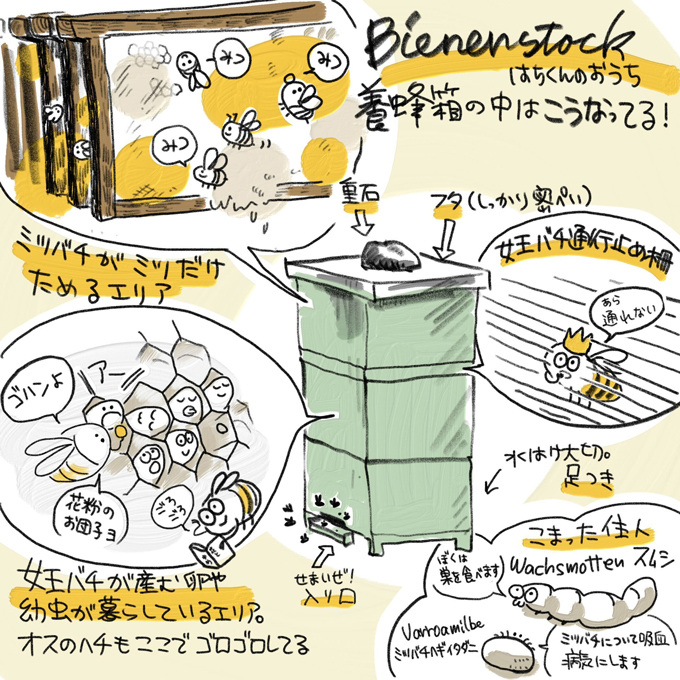 Bienenstock
はちくんのおうち
養蜂箱の中はこうなってる!
みつ
みつ
みつ
重石
フタ(しっかり密ぺい)
ミツバチがミツだけ
ためるエリア
女王バチ通行止め柵
あら
通れない
ゴハンよ
アー
花粉の
お団子ヨ
女王バチが産む卵や
幼虫が暮らしているエリア。
オスのハチもここでゴロゴロしてる
せまいぜ!
入り口
水はけ大切。
足つき
こまった住人
Wachsmotten スムシ
ぼくは
巣を食べます
Varroamilbe
ミツバチヘギイタダニ
ミツバチについて吸血
病気にします